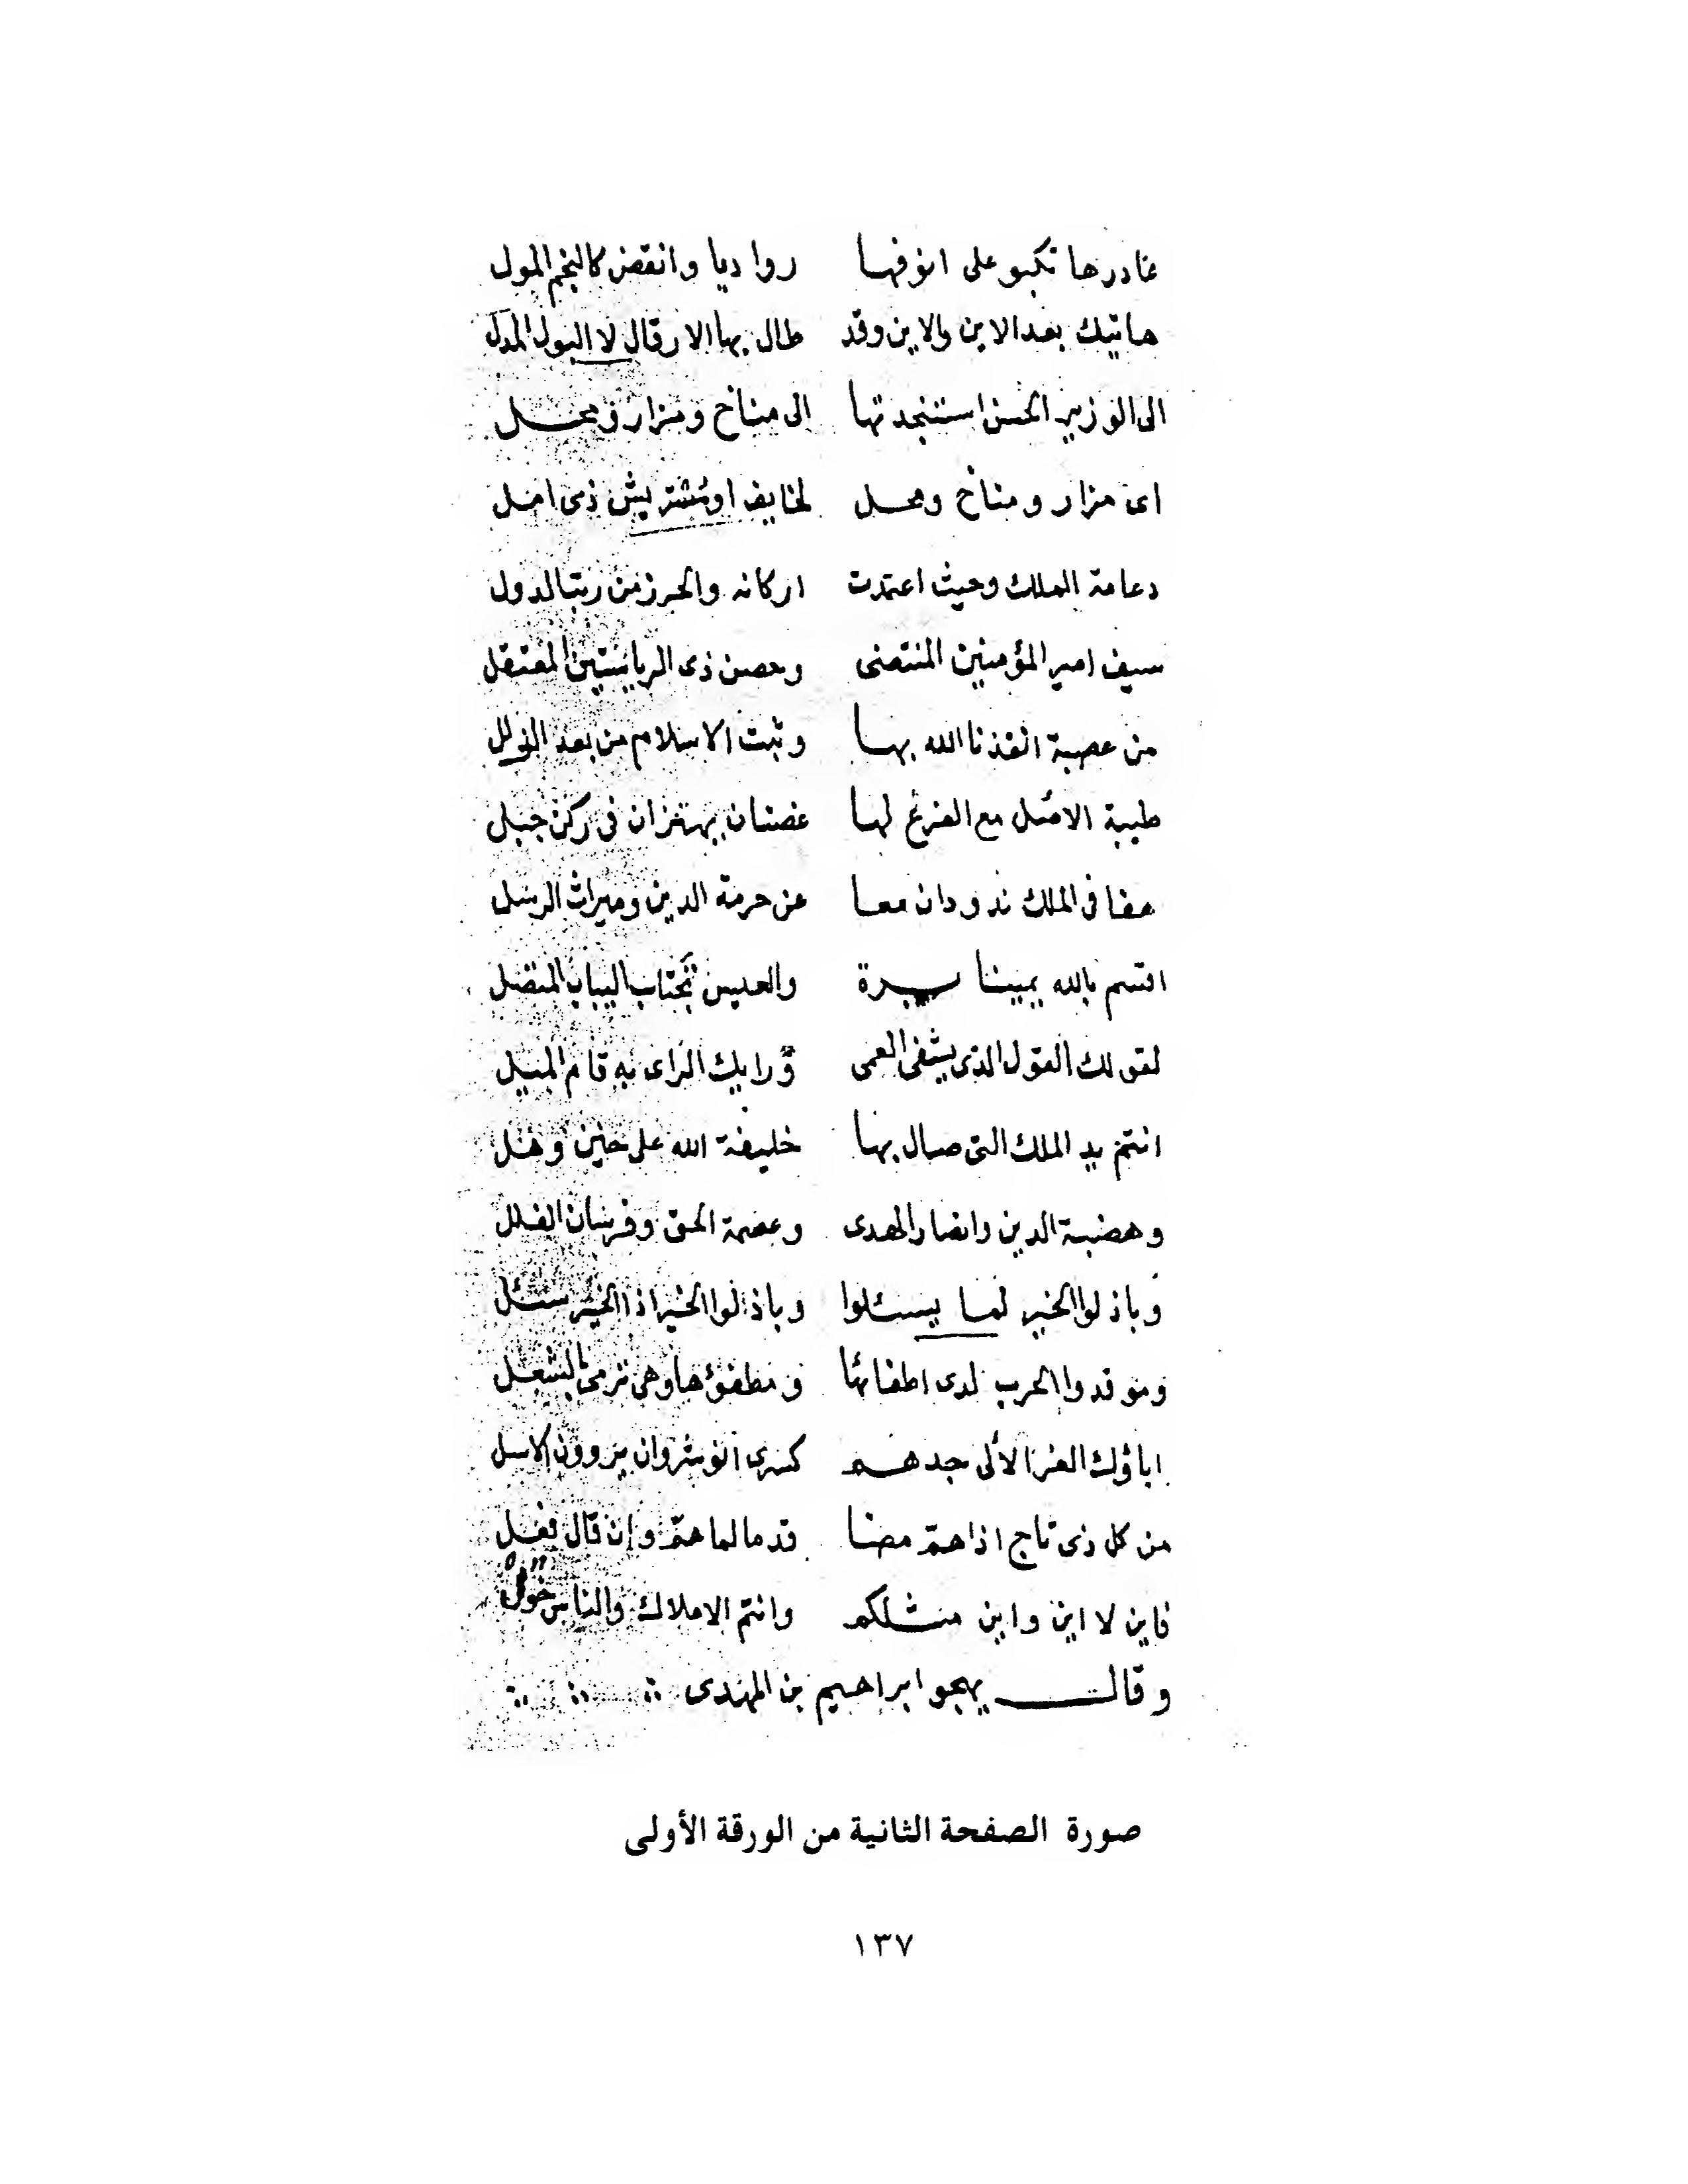 غادرها تكبو على انوفها رواديا وانقض كالنجم المول
هاتيك بعد الاين والاين وقد طال بها الارقال لا البول المدل
الى الوزير الحسن استنجدتها الى مناخ ومزار ومحل
اى مزار ومناخ ومحل لخايف او مشتريش ذى امل
دعامة الملك وحيث اعتمدت اركانه والحرز من ريب الدول
سيف امير المؤمنين المنتضى وحصن ذى الرياستين المعتقل
من عصبة انقذنا الله بها وثبت الاسلام من بعد الزلل
طيبة الاصل مع الفرع لها غصنان يهتزان فى ركن جبل
هفا فى الملك ندودان معا عن حرمة الدين وميراث الرسل
اقسم بالله يمينا برة والعيس تجتاب اليباب المنتضل
لقولك القول الذى يشفى العمى ورايك الراى به قام الميل
انتم يد الملك التى صال بها خليفة الله على حين وهل
وهضبة الدين وانصار الهدى وعصمة الحق وفرسان الفلل
وباذلوا الخير لما يسئلوا وباذلوا الخير اذا الخير سئل
وموقدوا الحرب لدى اطفائها ومطفؤها وهى ترمى بالشعل
اباؤك الغر الألى جدهم كسرى انوشروان يروون الاسل
من كل ذى تاج اذا همّ مضا قدما لما همّ وان قال فعل
فاين لا اين واين مثلكم وانتم الاملاك والناس خول
وقال يهجو ابراهيم بن المهدى
صورة الصفحة الثانية من الورقة الأولى
١٣٧